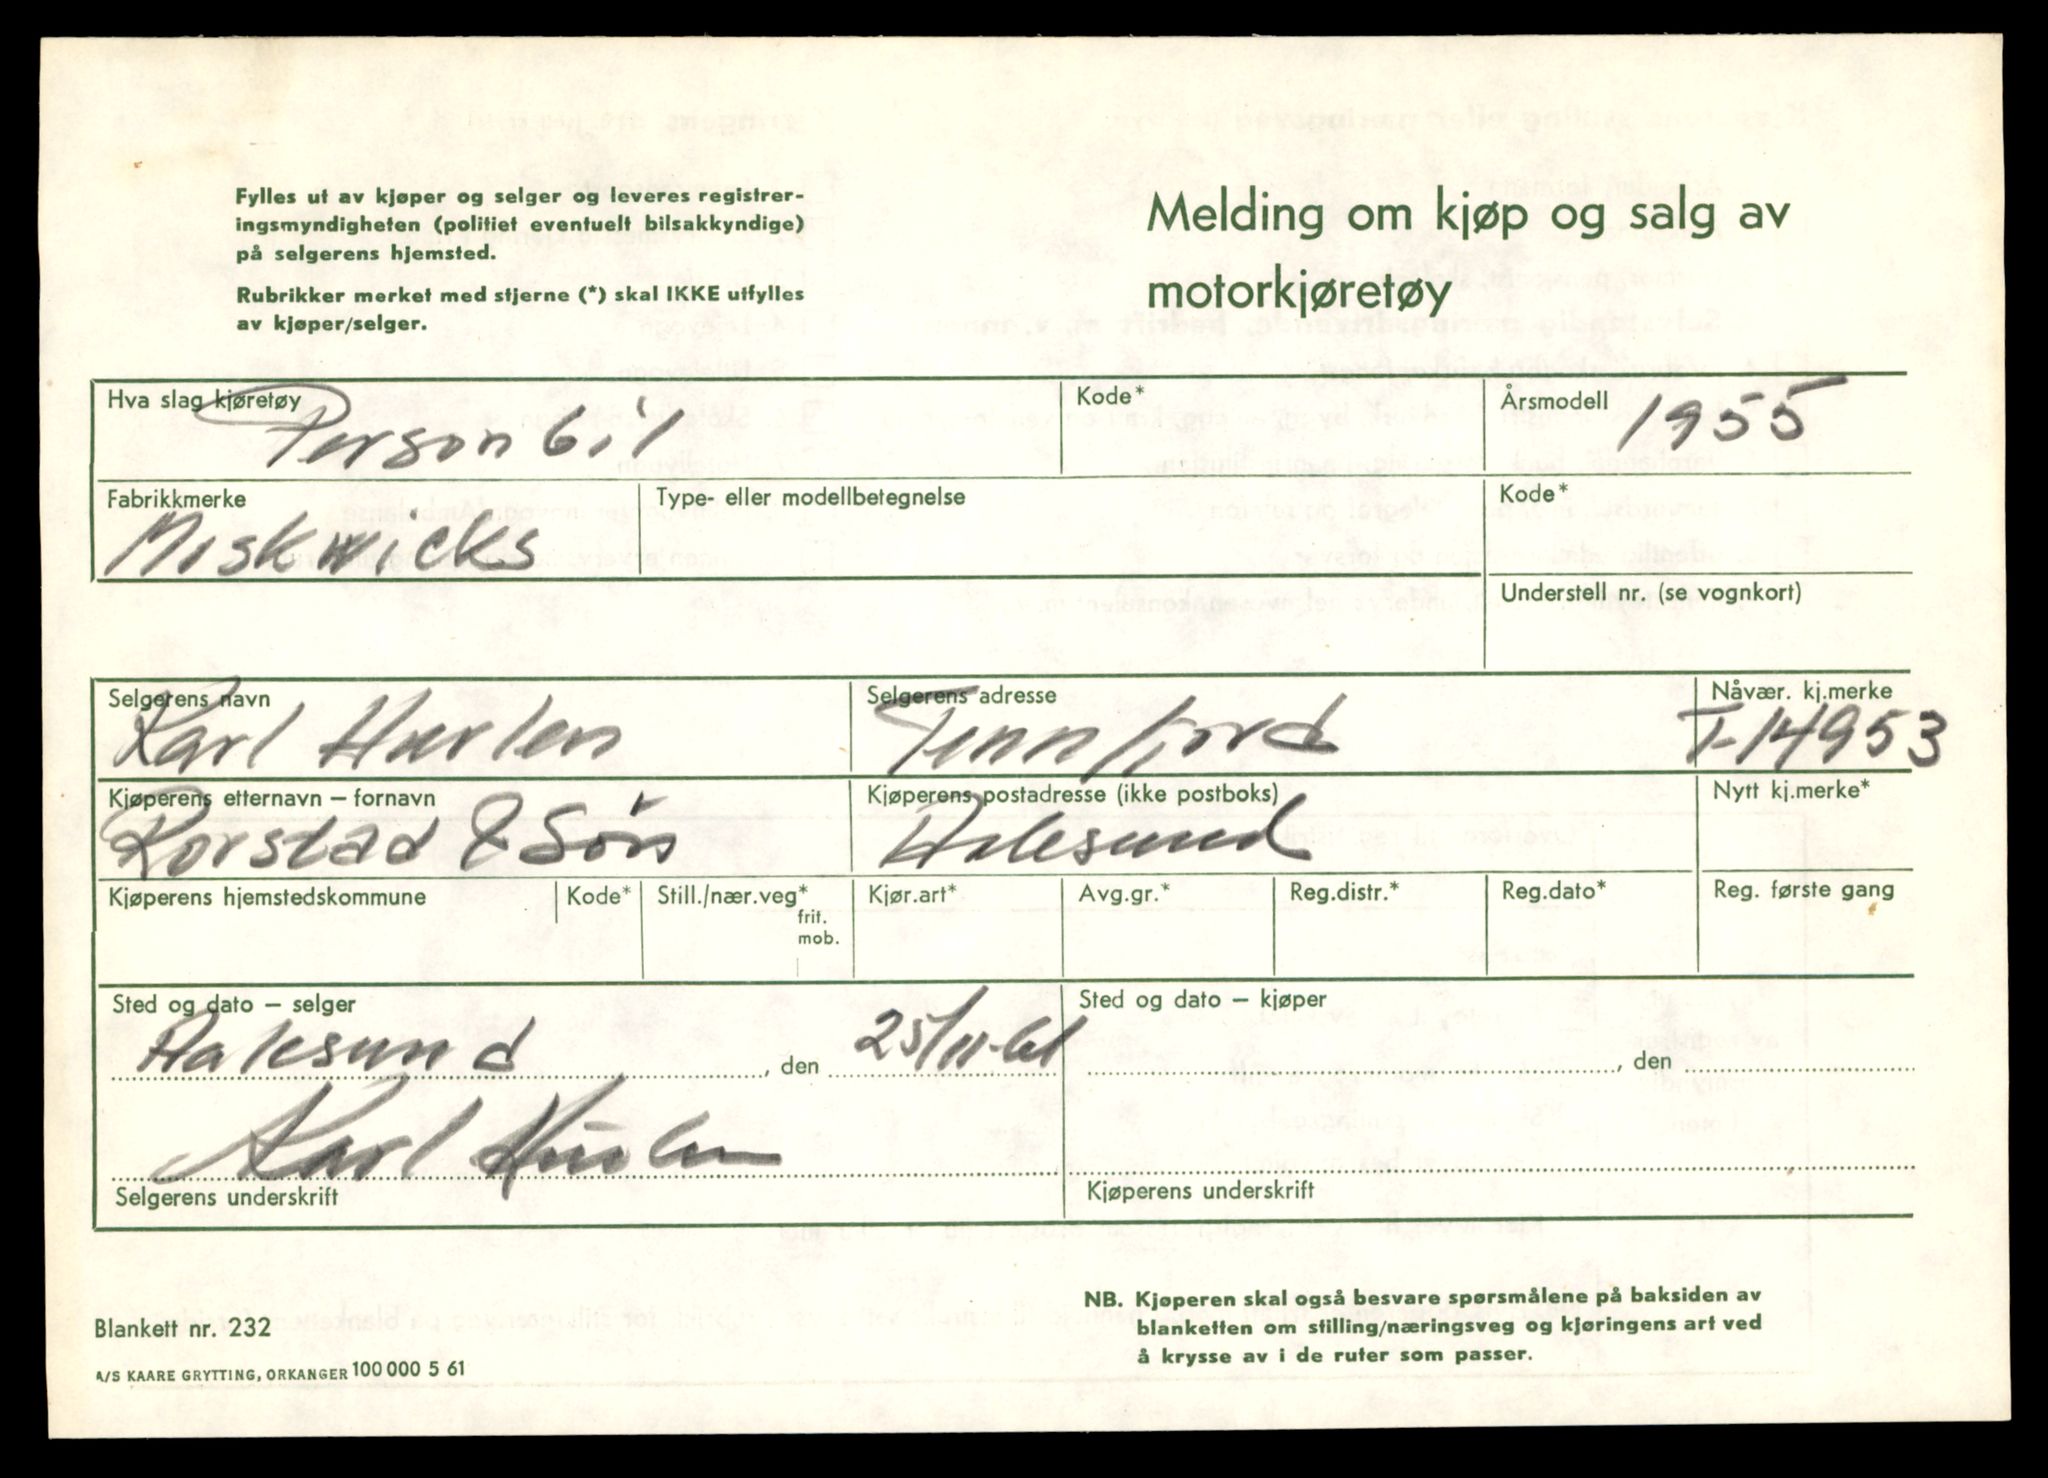 Fylles ut av kjøper og selger og leveres registrer-
ingsmyndigheten (politiet eventuelt bilsakkyndige)
på selgerens hjemsted.
Rubrikker merket med stjerne (*) skal IKKE utfylles
av kjøper/selger.
Melding om kjøp og salg av
motorkjøretøy
Hva slag kjøretøy
Personbil
Kode*
Årsmodell
1955
Fabrikkmerke
Type- eller modellbetegnelse
Kode*
Understell nr. (se vognkort)
Selgerens navn
Karl
Selgerens adresse
Tennfjord
Nåvær. kj.merke
T-14953
Kjøperens etternavn – fornavn
Rorstad & Søn
Kjøperens postadresse (ikke postboks)
Aalesund
Nytt kj.merke*
Kjøperens hjemstedskommune
Kode*
Still./nær.veg*
frit.
mob.
Kjør.art*
Avg.gr.*
Reg.distr.*
Reg.dato*
Reg. første gang
Sted og dato – selger
Aalesund, den 25/11-61
Karl
Selgerens underskrift
Sted og dato – kjøper
, den
Kjøperens underskrift
Blankett nr. 232
A/S KAARE GRYTTING, ORKANGER 100 000 5 61
NB. Kjøperen skal også besvare spørsmålene på baksiden av
blanketten om stilling/næringsveg og kjøringens art ved
å krysse av i de ruter som passer.